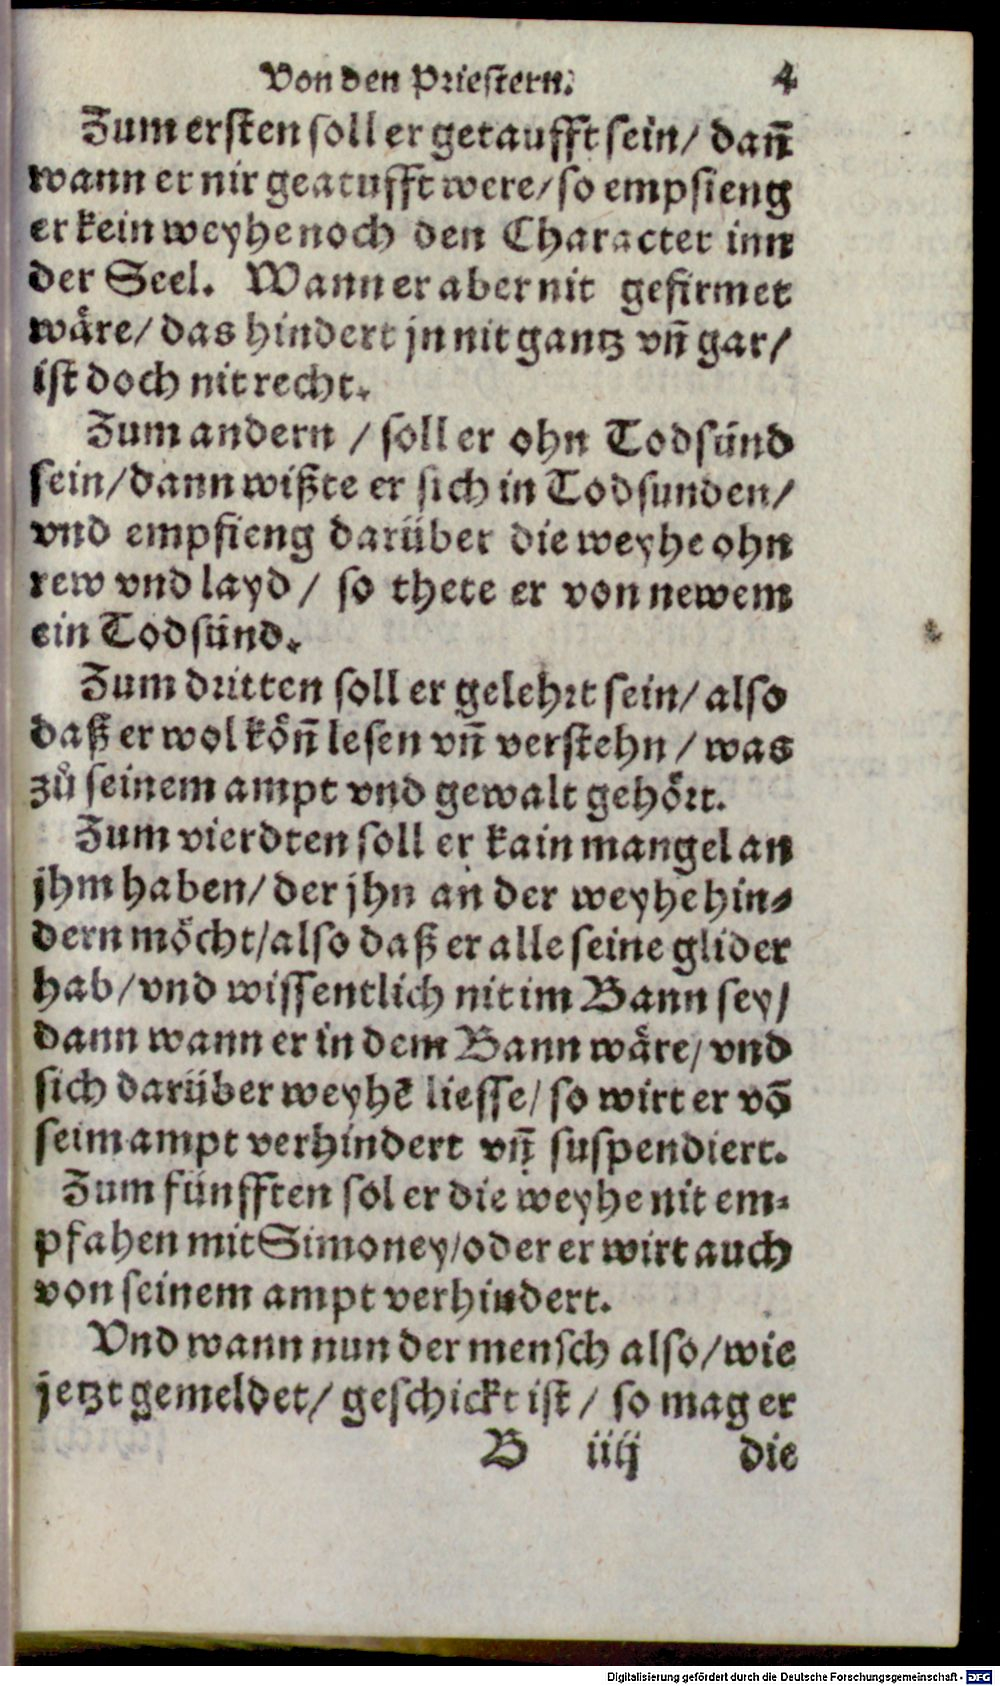 Von den Priestern. 4
Zum ersten soll er getaufft sein/ dañ
wann er nir geatufft were/ so empfieng
er kein weyhe noch den Character inn
der Seel. Wann er aber nit gefirmet
wäre/ das hindert jn nit gantz vñ gar/
ist doch nit recht.
Zum andern / soll er ohn Todsünd
sein/ dann wißte er sich in Todsunden/
vnd empfieng darüber die weyhe ohn
rew vnd layd / so thete er von newem
ein Todsünd.
Zum dritten soll er gelehrt sein/ also
daß er wol köñ lesen vñ verstehn / was
zů seinem ampt vnd gewalt gehört.
Zum vierdten soll er kain mangel an
jhm haben/ der jhn an der weyhe hin-
dern möcht/ also daß er alle seine glider
hab/ vnd wissentlich nit im Bann sey/
dann wann er in dem Bann wäre/ vnd
sich darüber weyhē liesse/ so wirt er võ
seim ampt verhindert vñ suspendiert.
Zum fünfften sol er die weyhe nit em-
pfahen mit Simoney/ oder er wirt auch
von seinem ampt verhindert.
Vnd wann nun der mensch also/ wie
jetzt gemeldet/ geschickt ist / so mag er
B iiij die
Digitalisierung gefördert durch die Deutsche Forschungsgemeinschaft - DFG